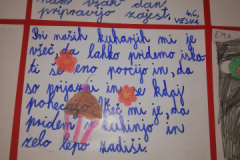 nam vsak dan
pripravijo zajest.
Pri naših kuharjih mi je
všeč, da lahko pridemo iska
ti še eno porcijo in, da
so prijazni in se kdaj
Všeč mi je, da
pridem v kuhinjo in
zelo lepo zadiši.
EMA